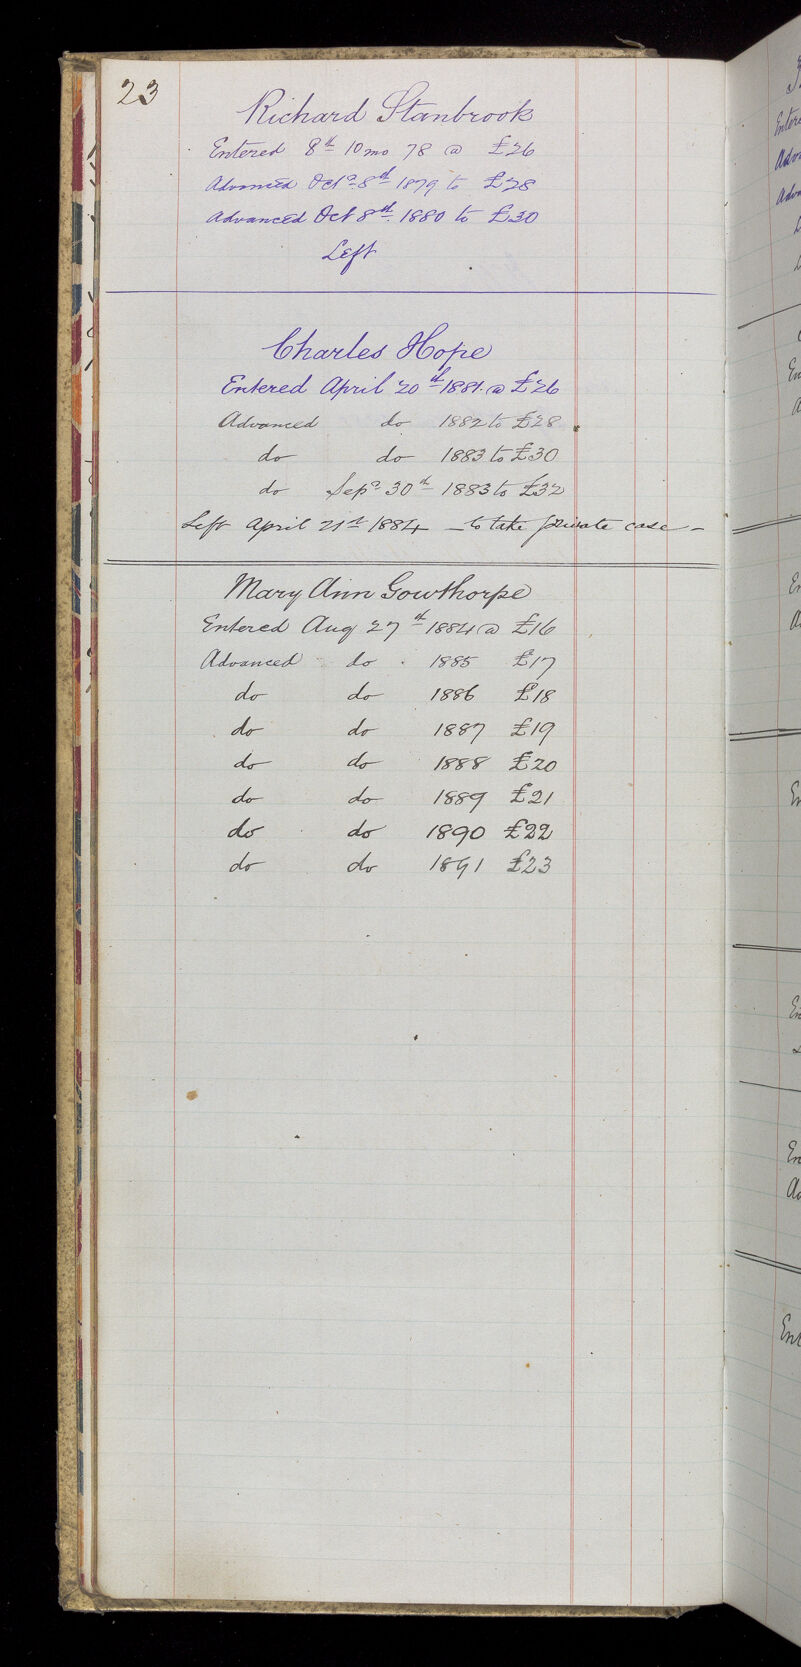 23
Richard Stanbrook
Entered 8th 10mo 78 @ £26
Advanced Octr 8th 1879 to £28
Advanced Oct 8th 1880 to £30
Left
Charles Hope
Entered April 20th 1881 @ £26
Advanced do 1882 to £28
do do 1883 to £30
do Sepr 30th 1883 to £32
Left April 21st 1884 - to take private case -
Mary Ann Gowthorpe
Entered Aug 27th 1884 @ £16
Advanced do 1885 £17
do do 1886 £18
do do 1887 £19
do do 1888 £20
do do 1889 £21
do do 1890 £22
do do 1891 £23